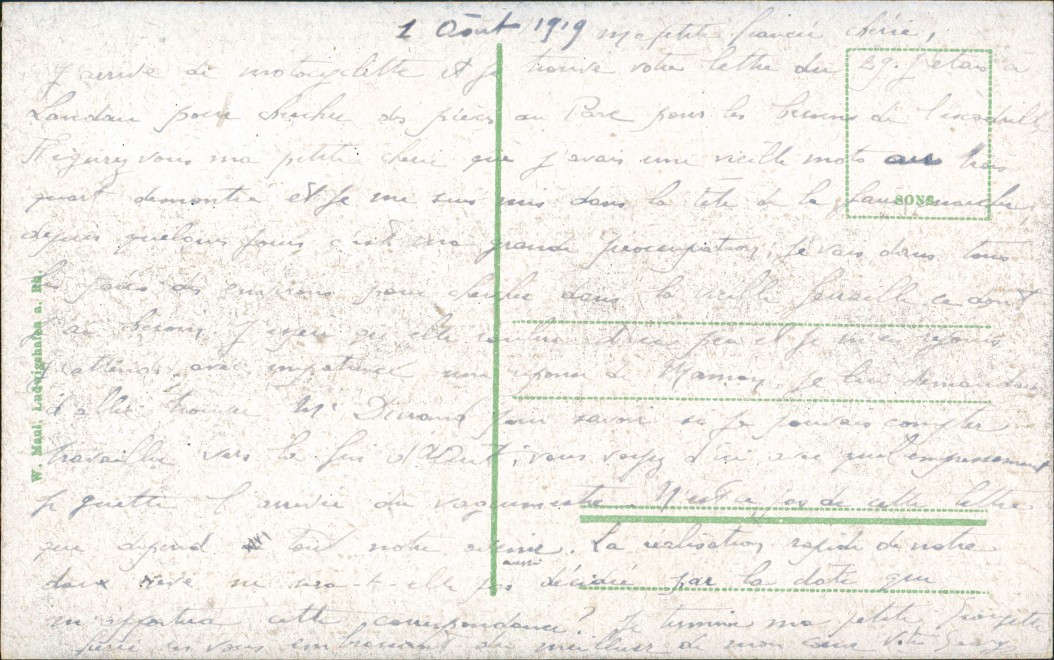 1 Août 1919 ma petite fiancée chérie,
J'arrive de motocyclette et je trouve votre lettre du 29. J'étais à
Landau pour chercher des pièces au Parc pour les besoins de l'escadrille
Figurez vous ma petite chérie que j'avais une vieille moto aux trois
quart demontée et je me suis mis dans la tête de la faire marcher,
depuis quelques jours c'est ma grande préoccupation, je vais dans tous
les parcs des environs pour chercher dans la vieille ferraille ce dont
j'ai besoin. J'espère qu'elle dans peu et je m'en réjouis
J'attends avec impatience une réponse de Maman, je lui demandais
d'aller trouver Mr Durand pour savoir si je pouvais compter
travailler vers la fin d'Août, vous voyez d'ici avec quel empressement
je guette l'arrivée du vaguemestre. N'est ce pas de cette lettre
que dépend tout notre avenir. La réalisation rapide de notre
doux rêve ne sera-t-elle pas aussi décidée par la date que
m'apportera cette correspondance? Je termine ma petite
chérie en vous embrassant du meilleur de mon cœur Votre
SONS
W. Maul, Ludwigshafen a. Rh.